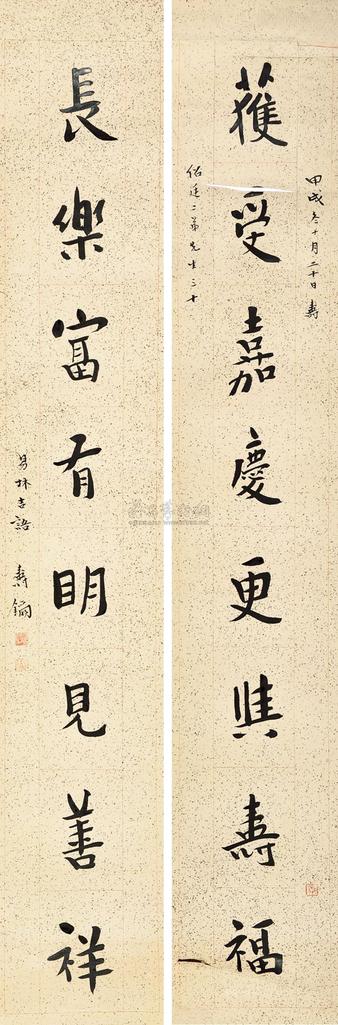 獲受嘉慶更與壽福
甲戌冬十月二十日壽
佑廷二弟先生三十
長樂富有明見善祥
易林吉語 壽鏞